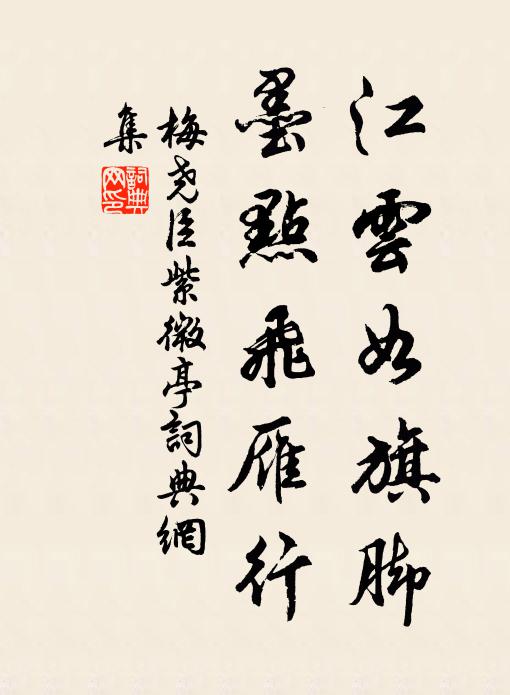 江雲如旗脚
墨點飛雁行
梅堯臣紫微亭詞典網
集
詞典
网印